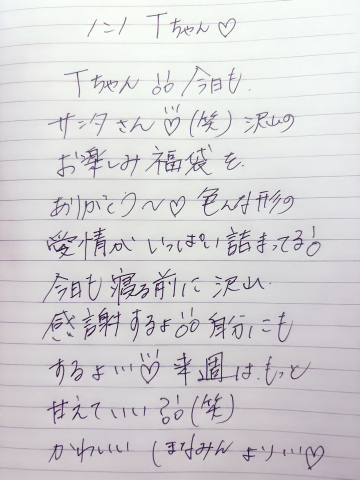 ハント Tちゃん♡
Tちゃん!! 今日も
サンタさん♡(笑) 沢山の
お楽しみ福袋を
ありがとう〜♡ 色んな形の
愛情がいっぱい詰まってる!!
今日も寝る前に沢山
感謝するよ!! 自分にも
するよ…♡ 来週は、もっと
甘えていい?!!(笑)
かわいい (まなみん より…♡